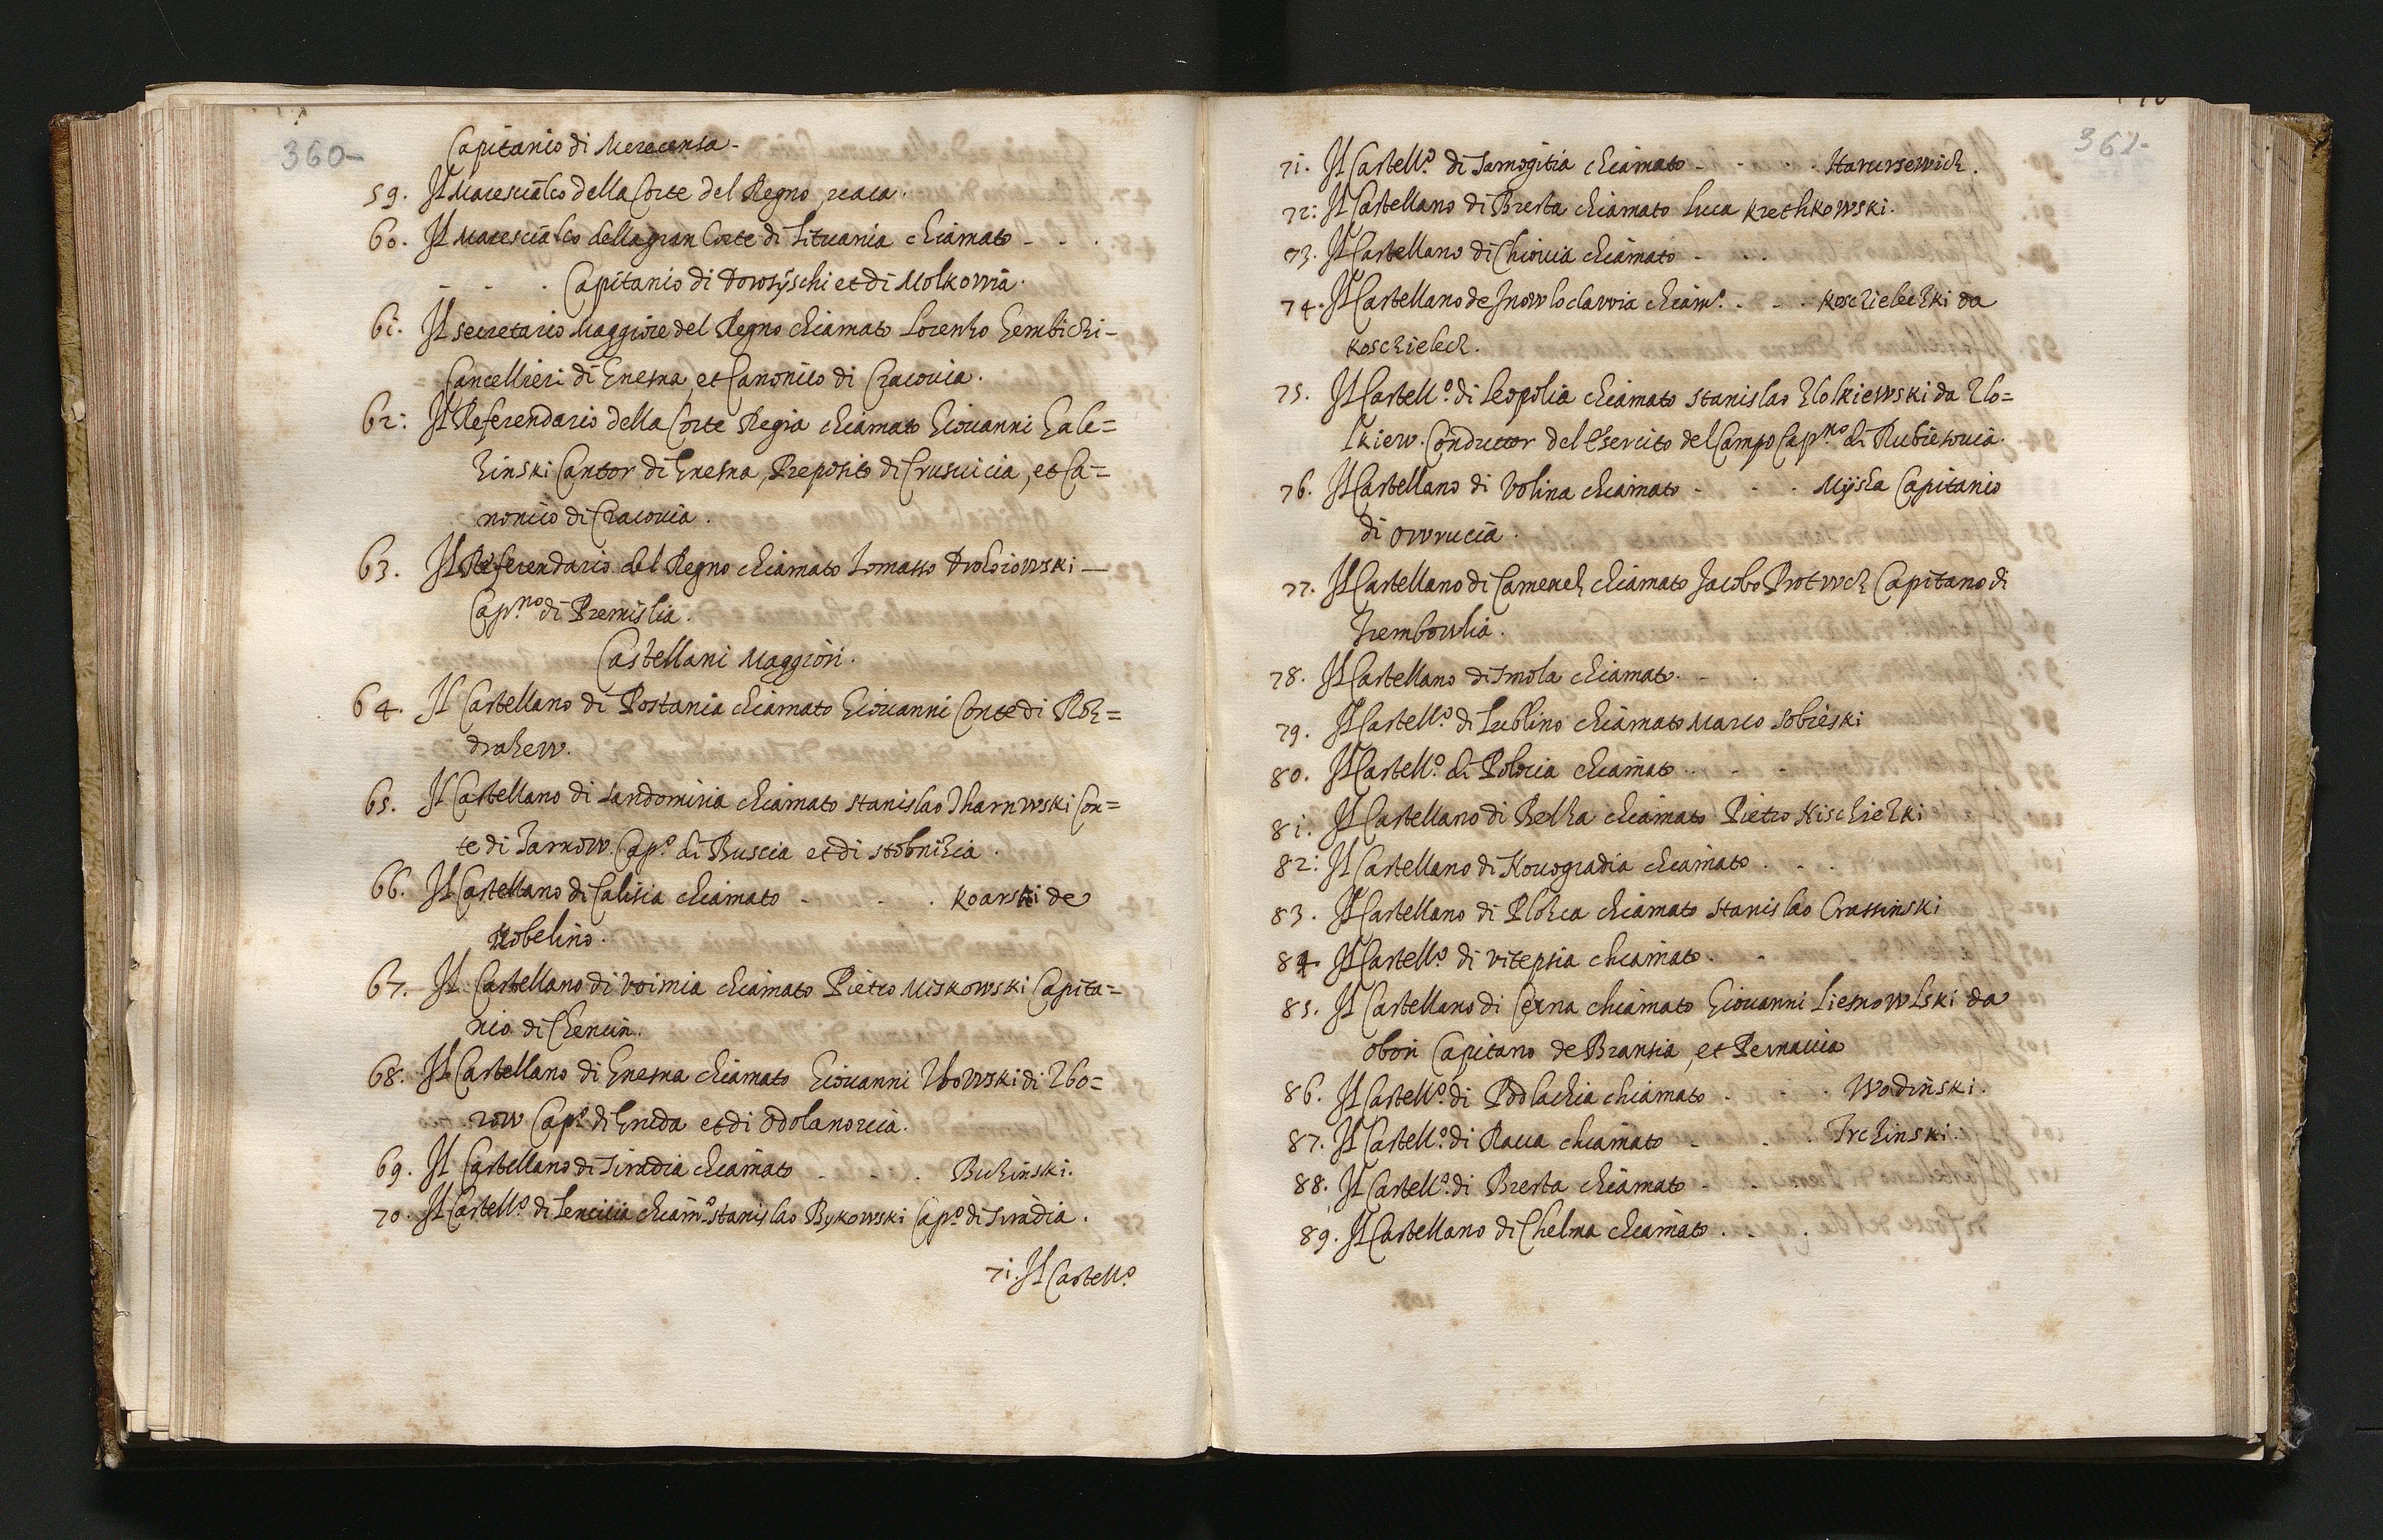 360-
Capitanio di Merecensa -
59. Il Marescialco della Corte del Regno, vaca.
60. Il Marescialco della gran Corte di Lituania chiamato - . .
- - . Capitanio di Dowsijschi et di Molkowia.
61. Il secretario Maggiore del Regno chiamato Lorenzo Gembichi -
Cancellieri di Gnesna, et Canonico di Cracovia.
62: Il Referendario della Corte Regia chiamato Giovanni Gale=
zinski Cantor di Gnesna, Preposito di Crusvicia, et Ca=
nonico di Cracovia.
63. Il Referendario del Regno chiamato Tomasso Drohoiowski —
Cap.no di Premislia.
Castellani Maggiori.
64. Il Castellano di Postania chiamato Giovanni Conte di Roz=
drazew.
65. Il Castellano di Sandomiria chiamato Stanislao Tharnwski Con=
te di Tarnow. Cap.o di Buscia et di Stobnizia.
66. Il Castellano di Calisia chiamato - - . Koarski de
Kobelino.
67. Il Castellano di Voimia chiamato Pietro Miskowski Capita=
nio di Chencin.
68. Il Castellano di Gnesna chiamato Giovanni Zbowski di Zbo=
row Cap.o di Gnida et di Odolanorcia.
69. Il Castellano di Siradia chiamato - - . Buzinski.
70. Il Castell.o di Lencicia chiam.o Stanislao Bykowski Cap.o di Siradia.
71. Il Castell.o
361-
71. Il Castell.o di Samogitia chiamato - - . Narursewich.
72: Il Castellano di Bresta chiamato Luca Krethkowski.
73. Il Castellano di Chiovia chiamato - . .
74. Il Castellano de Jnowloclawia chiam.o . - . Koschielezki da
Koschielech.
75. Il Castell.o di Leopolia chiamato Stanislao Zlolkiewski da Zlo=
lkiew. Conductor del Esercito del Campo Cap.no di Rubieswia.
76. Il Castellano di Volina chiamato - - . Mijska Capitanio
di Owrucia.
77. Il Castellano di Camenez chiamato Jacobo Protwcz Capitano di
Trembowlia.
78. Il Castellano di Smola chiamato. - .
79. Il Castell.o di Lublino chiamato Marco Sobieski
80. Il Castell.o di Polocia chiamato . - -
81. Il Castellano di Belza chiamato Pietro Nischiezki
82: Il Castellano di Novogradia chiamato . - .
83. Il Castellano di Plozca chiamato Stanislao Crassinski
84 Il Castell.o di Vitepsia chiamato. -
85. Il Castellano di Cerna chiamato Giovanni Liesnowlski da
Obori Capitano de Bransia, et Pernavia
86. Il Castell.o di Podlachia chiamato - - . Wodinski.
87. Il Castell.o di Rava chiamato - - . Trczinski.
88. Il Castell.o di Bresta chiamato - - .
89. Il Castellano di Chelma chiamato . - .